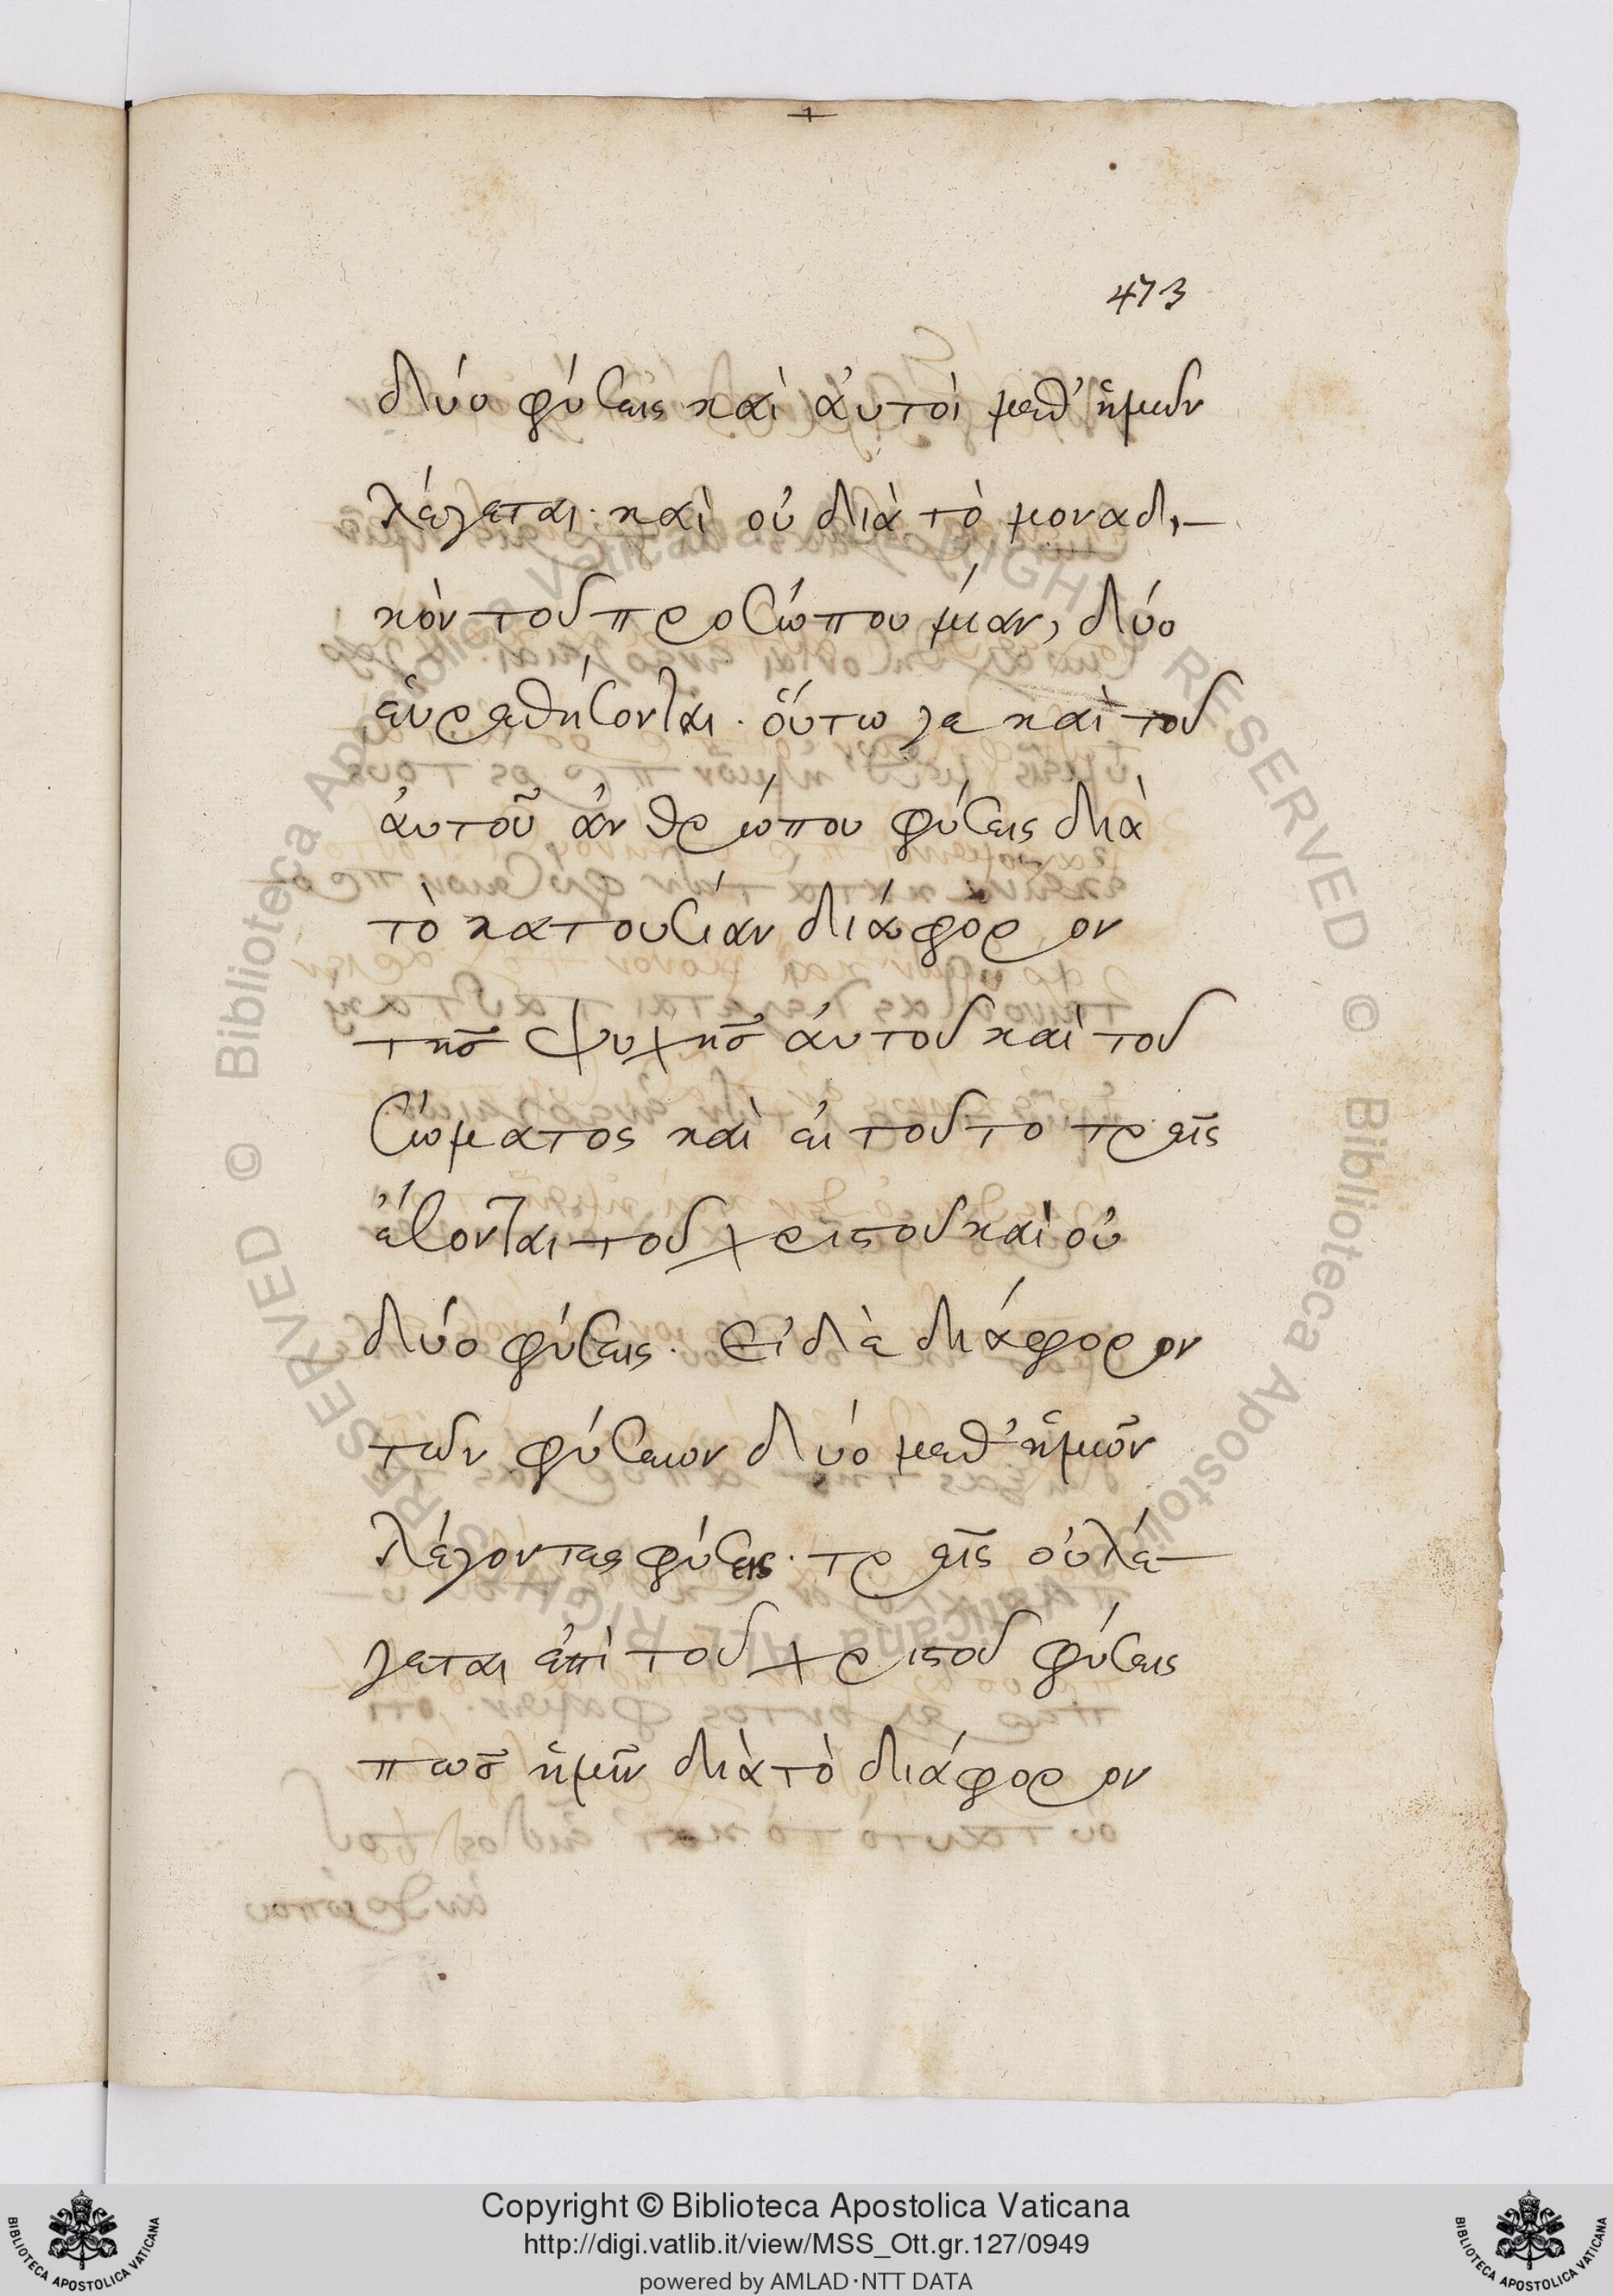 473
δύο φύσεις καὶ ἀυτοὶ μεθ' ἡμῶν
λέγεται· καὶ οὐ διὰ τὸ μοναδι-
κὸν τοῦ προσώπου μίαν, δύο
εὑρεθήσονται. ὅυτω γε καὶ τοῦ
ἀυτοῦ ἀνθρώπου φύσεις διὰ
τὸ κατουσίαν διάφορον
τῆς ψυχῆς ἀυτοῦ καὶ τοῦ
σώματος καὶ εἰ τοῦτο τρεῖς
ἔσονται τοῦ χριστοῦ καὶ οὐ
δύο φύσεις. Εἰ δὲ διάφορον
τῶν φύσεων δύο μεθ' ἡμῶν
λέγοντες φύσεις· τρεῖς οὐ λέ-
γεται ἐπὶ τοῦ χριστοῦ φύσεις
πῶς ἡμῖν διὰ τὸ διάφορον
© Biblioteca Apostolica Vaticana ALL RIGHTS RESERVED © Biblioteca Apostolica Vaticana ALL RIGHTS RESERVED
Copyright © Biblioteca Apostolica Vaticana
http://digi.vatlib.it/view/MSS_Ott.gr.127/0949
powered by AMLAD·NTT DATA
BIBLIOTECA APOSTOLICA VATICANA
BIBLIOTECA APOSTOLICA VATICANA